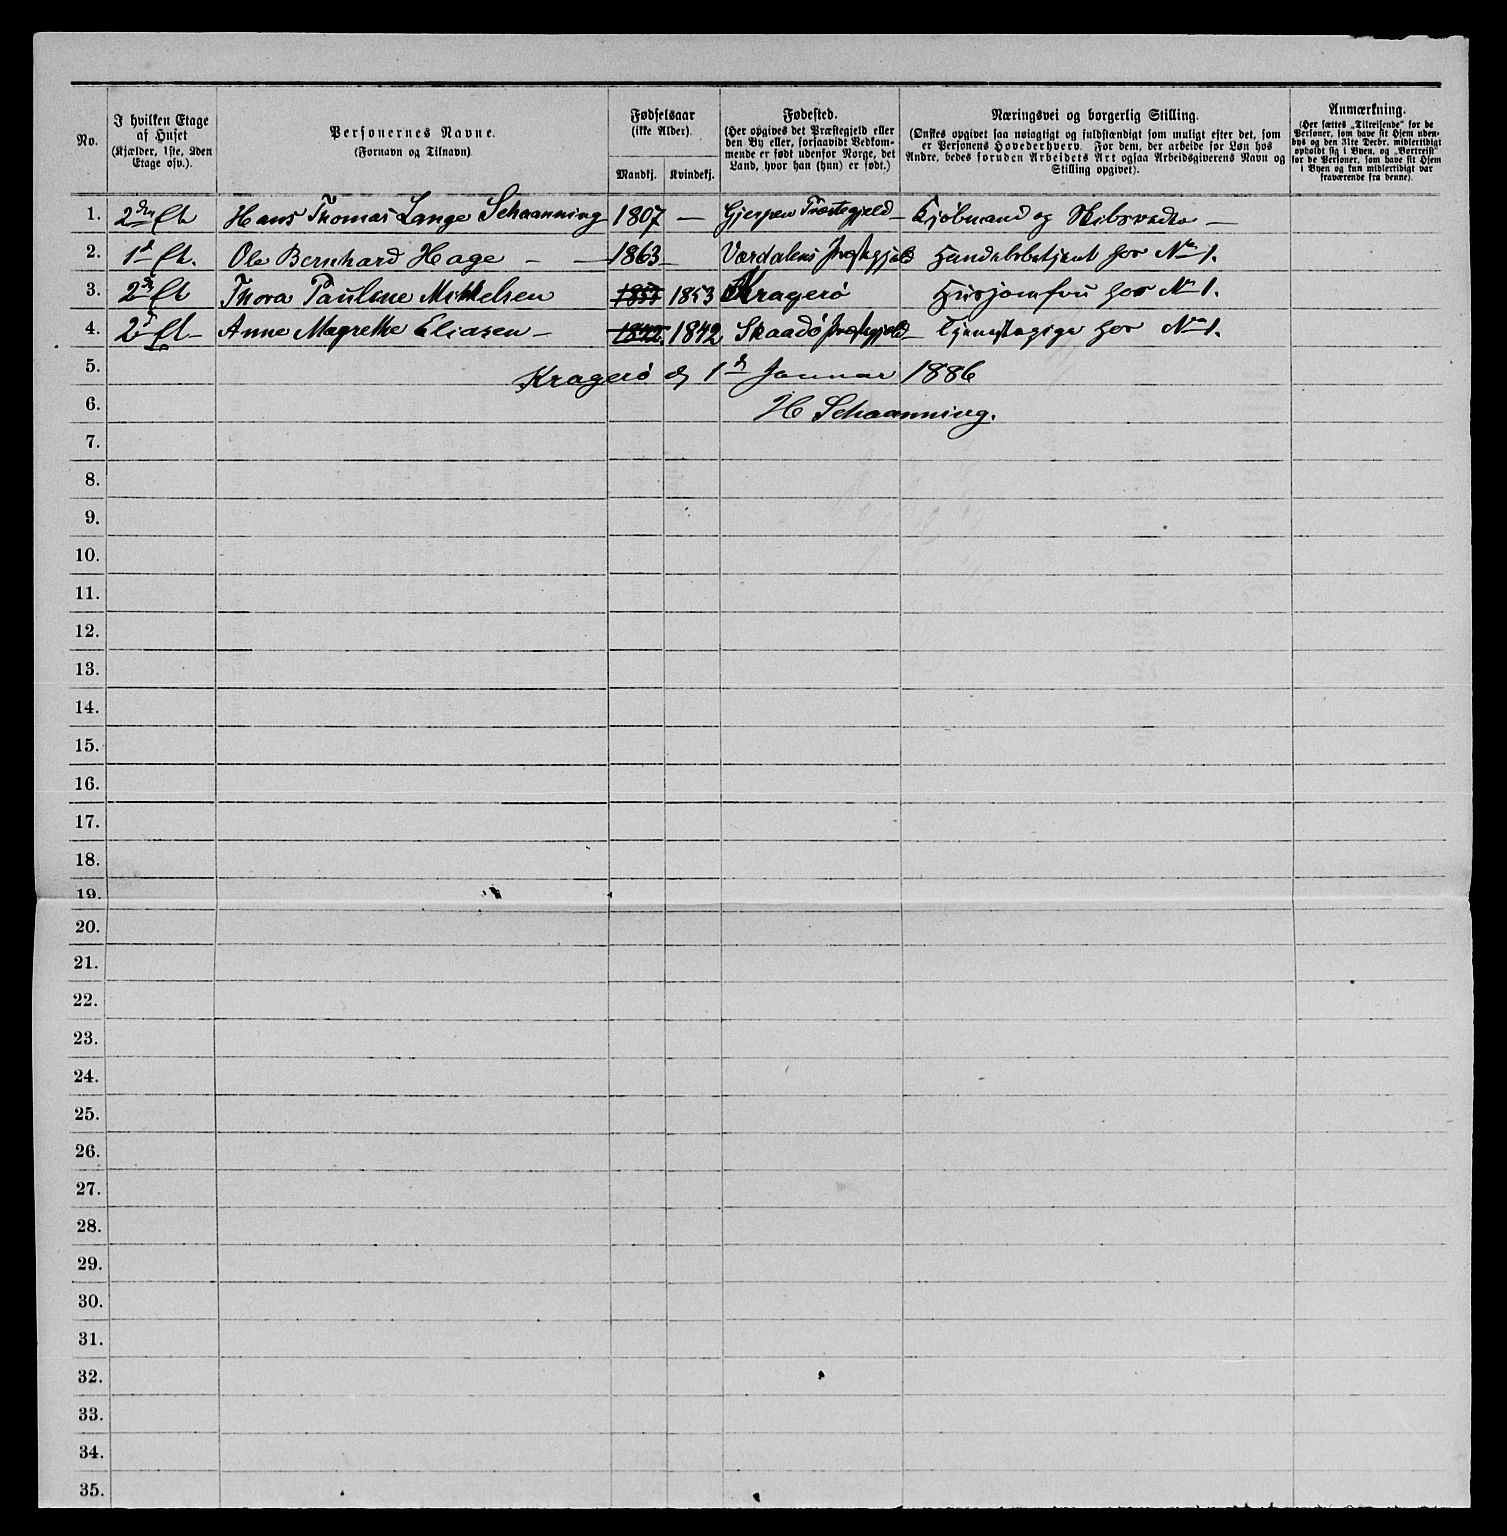 No.
I hvilken Etage af Huset (Kjælder, 1ste, 2den Etage osv.).
Personernes Navne. (Fornavn og Tilnavn)
Fødselsaar (ikke Alder).
Mandkj. Kvindekj.
Fødested. (Her opgives det Præstegjeld eller den By eller, forsaavidt Vedkommende er født udenfor Norge, det Land, hvor han (hun) er født.)
Næringsvei og borgerlig Stilling. (Ønskes opgivet saa nøiagtigt og fuldstændigt som muligt efter det, som er Personens Hovederhverv. For dem, der arbeide for Løn hos Andre, bedes foruden Arbeidets Art ogsaa Arbeidsgiverens Navn og Stilling opgivet).
Anmærkning. (Her sættes „Tilreisende“ for de Personer, som have sit Hjem udenbys og den 31te Decbr. midlertidigt opholdt sig i Byen, og „Bortreist“ for de Personer, som have sit Hjem i Byen og kun midlertidigt var fraværende fra denne).
1. 2den Et Hans Thomas Lange Schaanning 1807 — Gjerpen Præstegjeld — Kjøbmand og Skibsreder —
2. 1st Et. Ole Bernhard Hage — — 1863 — Værdalens Præstegjeld Handelsbetjent hos No 1.
3. 2de Et Thora Pauline Mikkelsen 1853 1853 Kragerö Husjomfru hos No 1.
4. 2d Et — Anne Magrethe Eliasen — 1842 1842 Skaadö Præstegjeld — Tjenestepige hos No 1.
5. Kragerö d 1d Januar 1886
6. H Schaanning.
7.
8.
9.
10.
11.
12.
13.
14.
15.
16.
17.
18.
19.
20.
21.
22.
23.
24.
25.
26.
27.
28.
29.
30.
31.
32.
33.
34.
35.